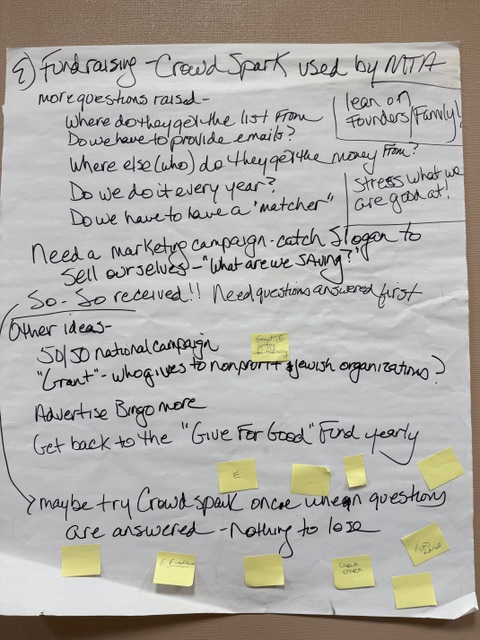 E) Fundraising - Crowd Spark used by MTA
more questions raised -
Where do they get the list from
Do we have to provide emails?
Where else (who) do they get the money from?
Do we do it every year?
Do we have to have a "matcher"
lean on
Founders/Family!
Stress what we
are good at!
Need a marketing campaign - catch slogan to
sell ourselves - "What are we saving?"
So-So received!! Need questions answered first
Other ideas -
50/50 national campaign
"Grant" - who gives to nonprofit & Jewish organizations?
Advertise Bingo more
Get back to the "Give For Good" Fund yearly
E
maybe try Crowdspark once when questions
are answered - nothing to lose
Crowd
Spark